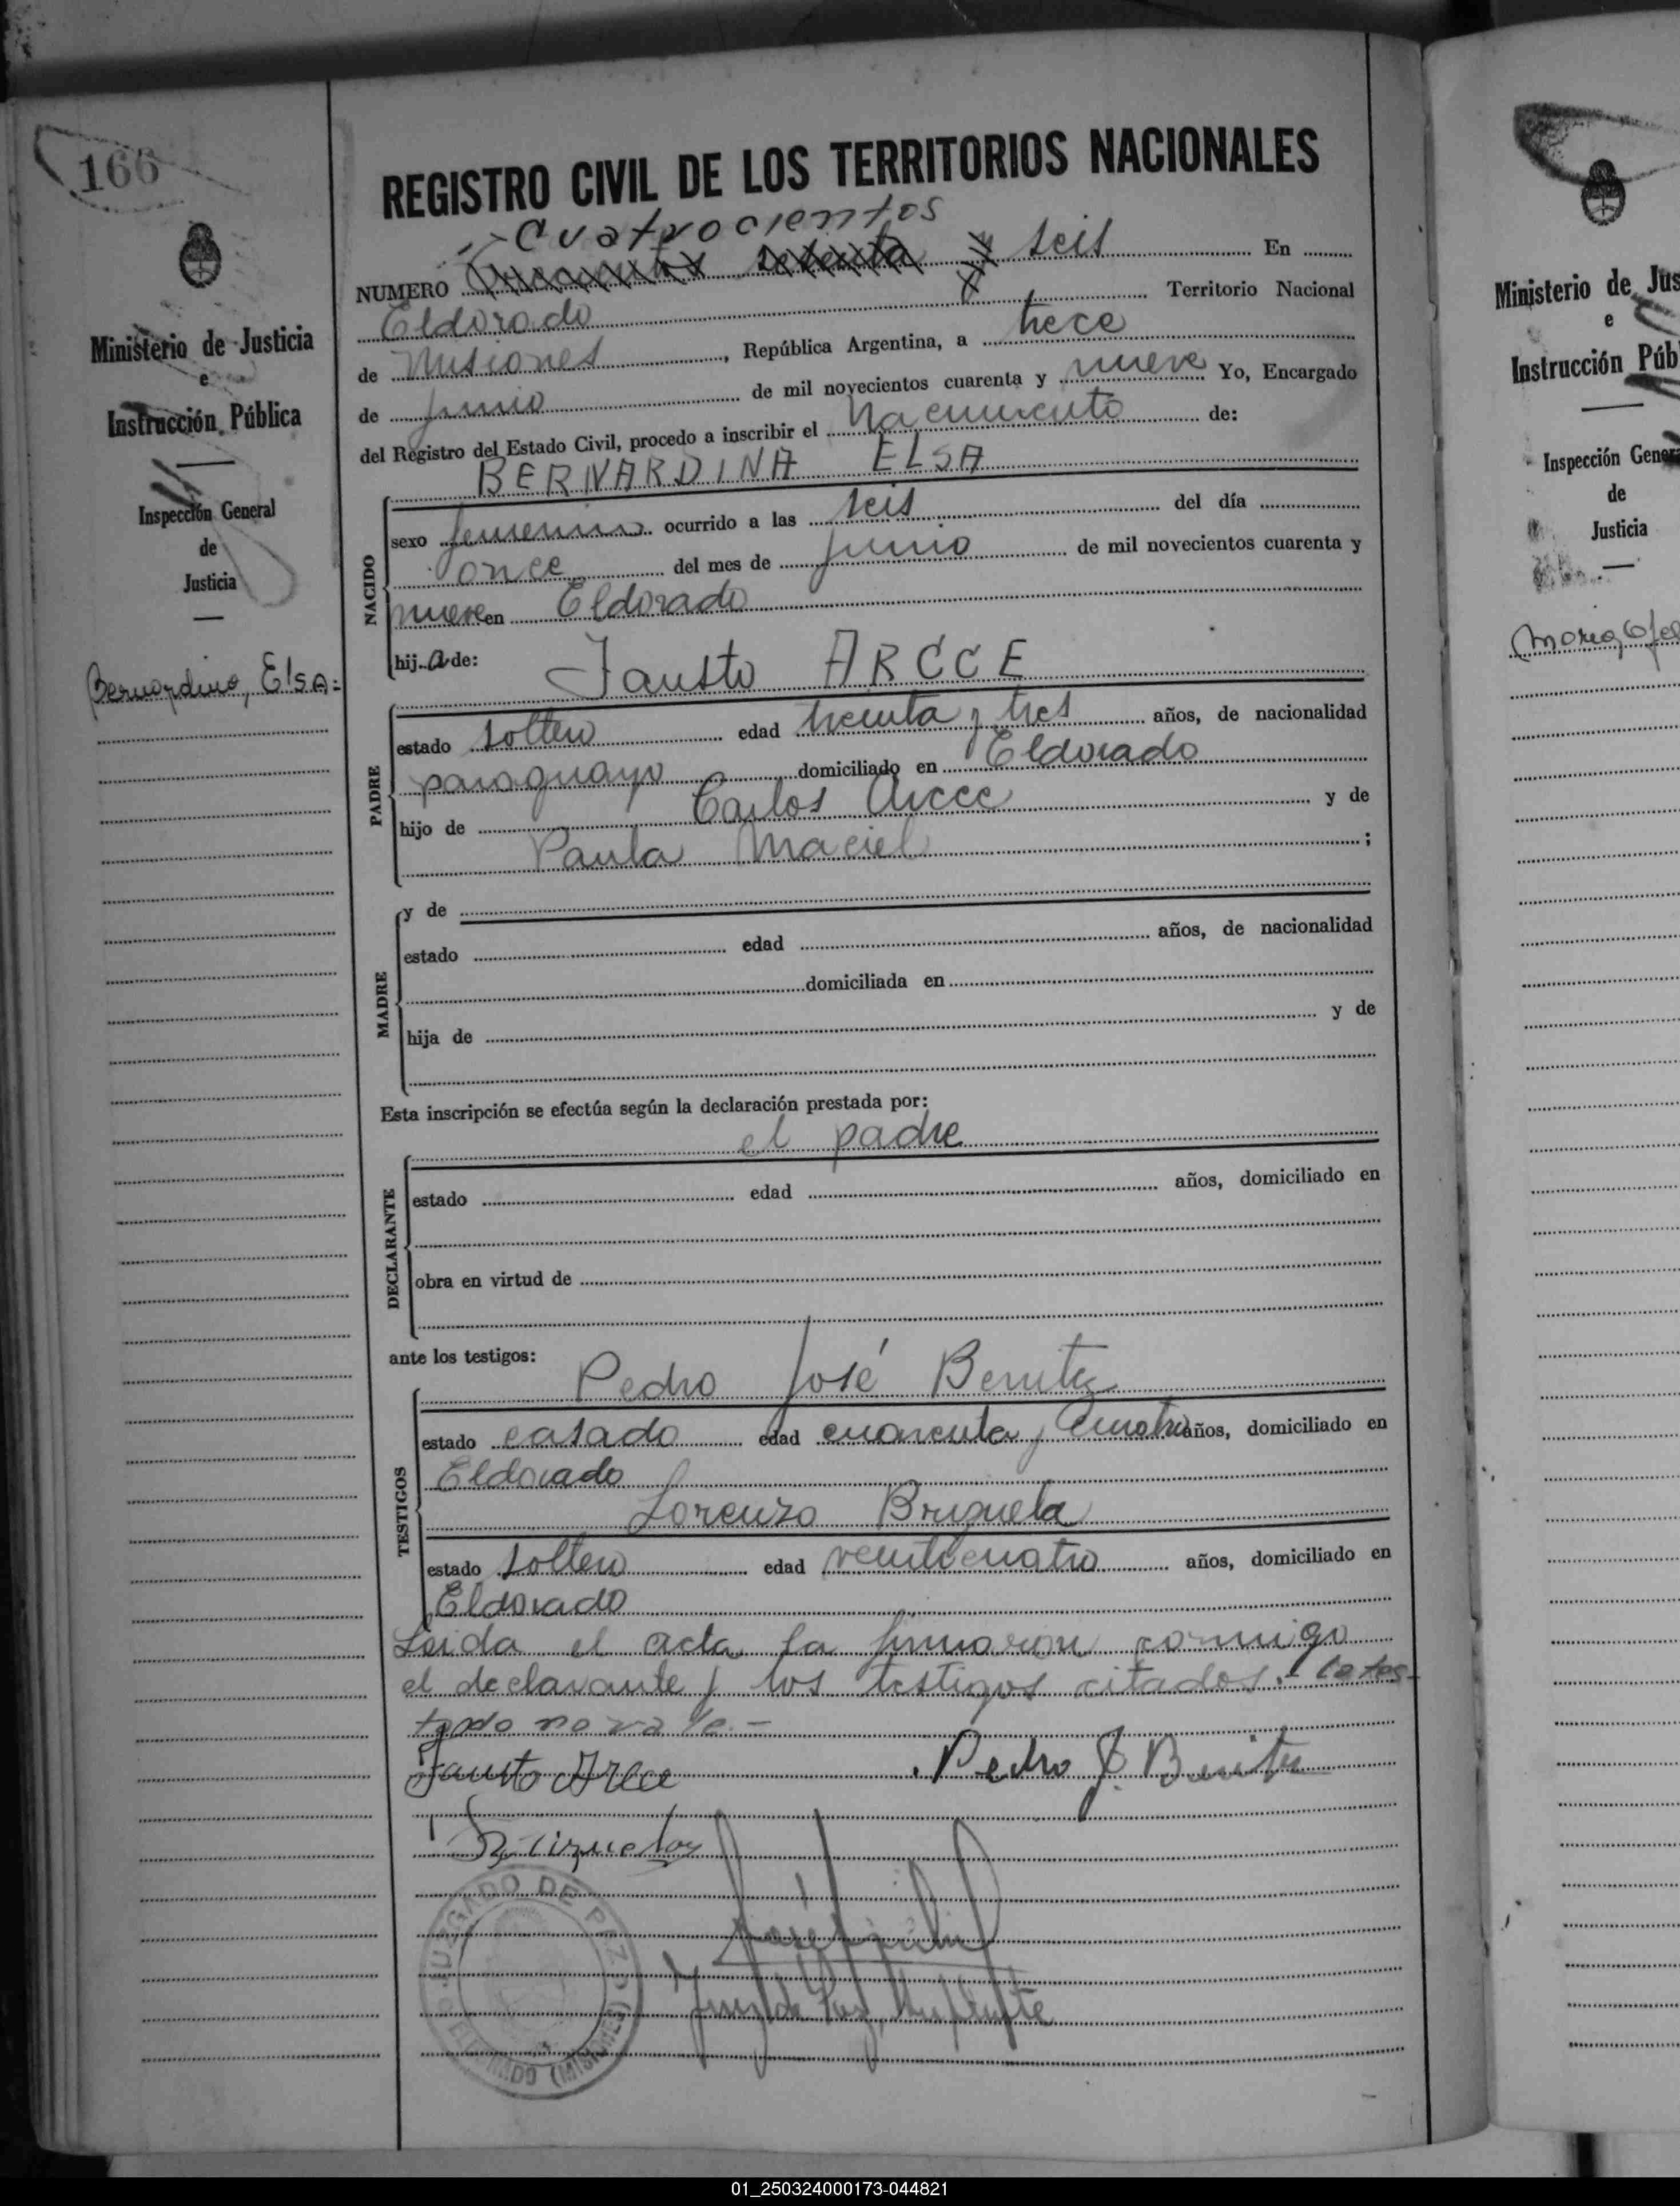 166
REGISTRO CIVIL DE LOS TERRITORIOS NACIONALES
Cuatrocientos
NUMERO setenta y seis En
Eldorado Territorio Nacional
de Misiones, República Argentina, a trece
de junio de mil novecientos cuarenta y nueve Yo, Encargado
del Registro del Estado Civil, procedo a inscribir el Nacimiento de:
BERNARDINA ELSA
NACIDO
sexo femenino ocurrido a las seis del día
once del mes de junio de mil novecientos cuarenta y
nueve en Eldorado
hij a de: Fausto ARCCE
PADRE
estado soltero edad treinta y tres años, de nacionalidad
paraguayo domiciliado en Eldorado
hijo de Carlos Arcce y de
Paula Maciel ;
MADRE
y de
estado edad años, de nacionalidad
domiciliada en
hija de y de
Esta inscripción se efectúa según la declaración prestada por:
el padre
DECLARANTE
estado edad años, domiciliado en
obra en virtud de
ante los testigos:
Pedro José Benitez
TESTIGOS
estado casado edad cuarenta y cuatro años, domiciliado en
Eldorado
Lorenzo Brizuela
estado soltero edad veinticuatro años, domiciliado en
Eldorado
Leida el acta la firmaron conmigo
el declarante y los testigos citados.- Lo tes-
tado no vale.-
Fausto Arcce
Pedro J. Benitez
Juez de Paz Suplente
JUZGADO DE PAZ
ELDORADO (MISIONES)
Ministerio de Justicia
e
Instrucción Pública
Inspección General
de
Justicia
Bernardina, ElsA=
Ministerio de Jus
e
Instrucción Púb
Inspección Gener
de
Justicia
01_250324000173-044821